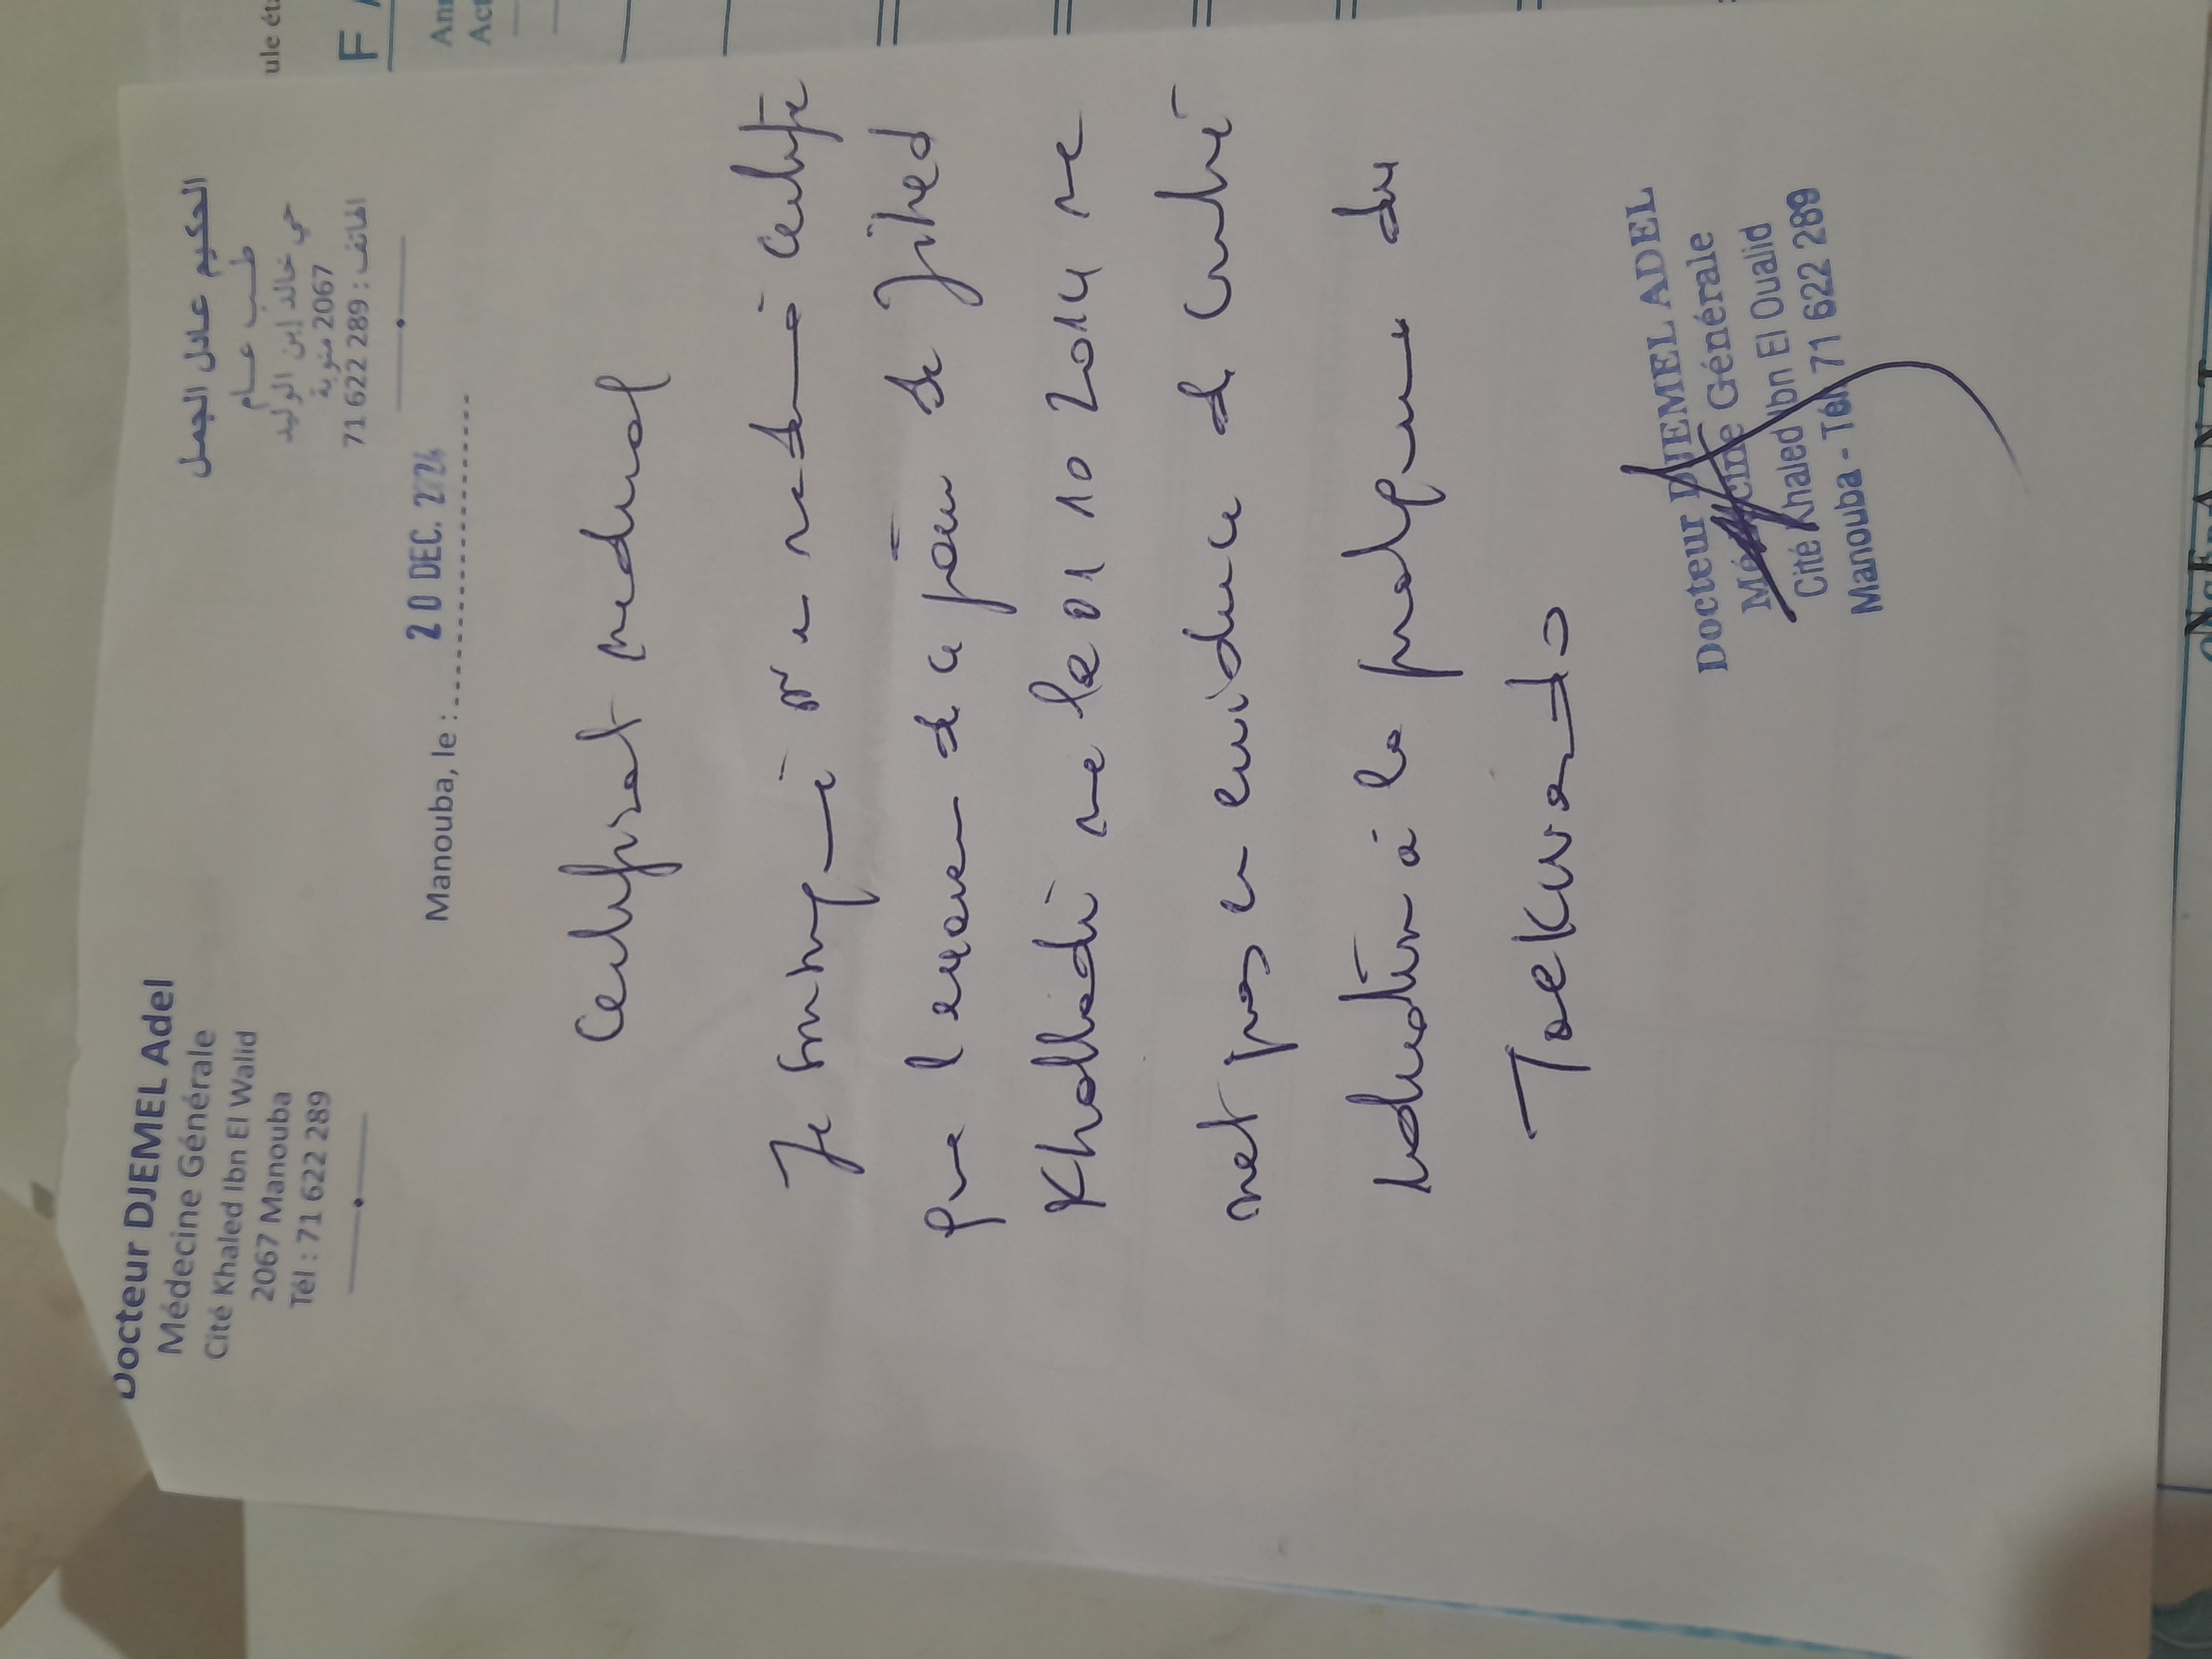 Docteur DJEMEL Adel
Médecine Générale
Cité Khaled Ibn El Walid
2067 Manouba
Tél : 71 622 289
الحكيم عادل الجمل
طب عام
حي خالد إبن الوليد
2067 منوبة
الهاتف : 289 622 71
Manouba, le : 20 DEC. 2024
Certificat medical
Je soussigné certifie
que l examen de ce jour de Jihed
Khalladi né le 01 10 2014 ne
met pas en evidence de contre
indication à la pratique du
Taekwendo
Docteur DJEMEL ADEL
Médecine Générale
Cité Khaled Ibn El Oualid
Manouba - Tél 71 622 289
ule éta
F A
Ann
Act